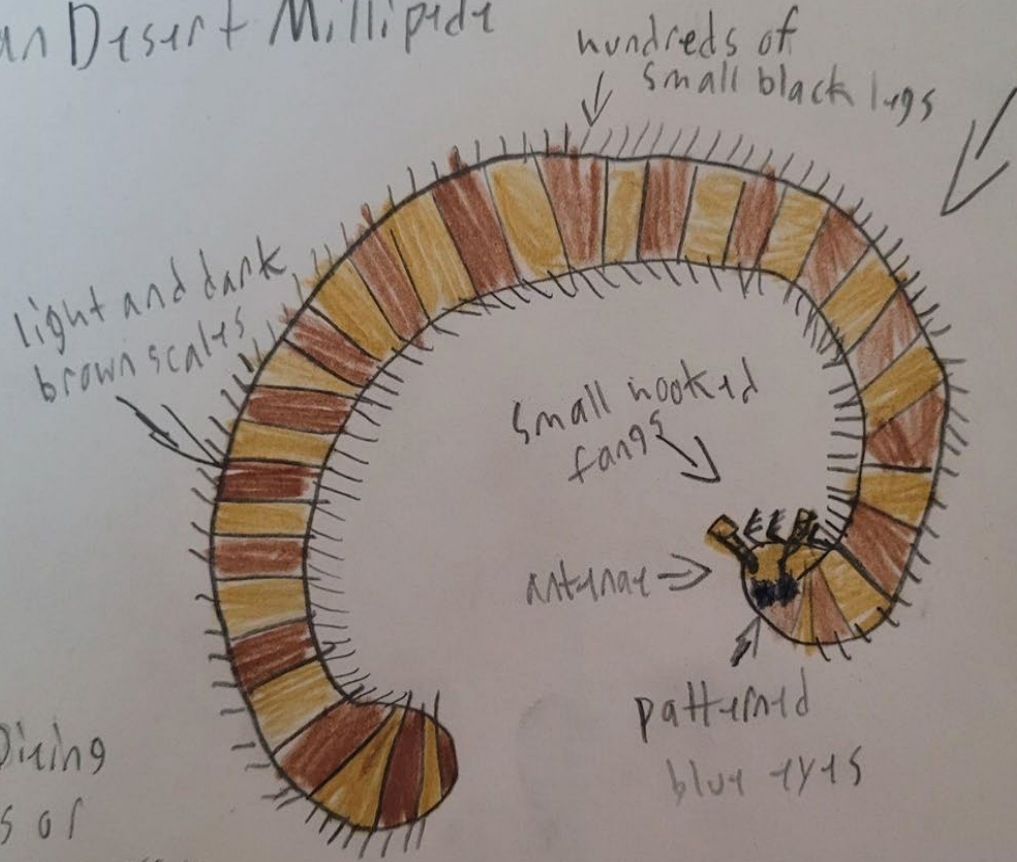 an Desert Millipede
hundreds of
small black legs
light and dark
brown scales
small hooked
fangs
antenae
patterned
blue eyes
s or